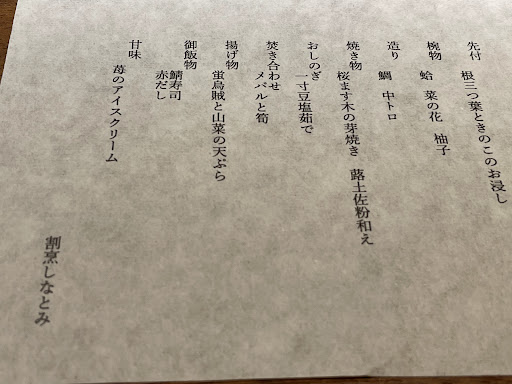 先付　根三つ葉ときのこのお浸し
椀物　蛤　菜の花　柚子
造り　鯛　中トロ
焼き物　桜ます木の芽焼き　蕗土佐粉和え
おしのぎ
一寸豆塩茹で
焚き合わせ
メバルと筍
揚げ物
蛍烏賊と山菜の天ぷら
御飯物
鯖寿司
赤だし
甘味
苺のアイスクリーム
割烹しなとみ